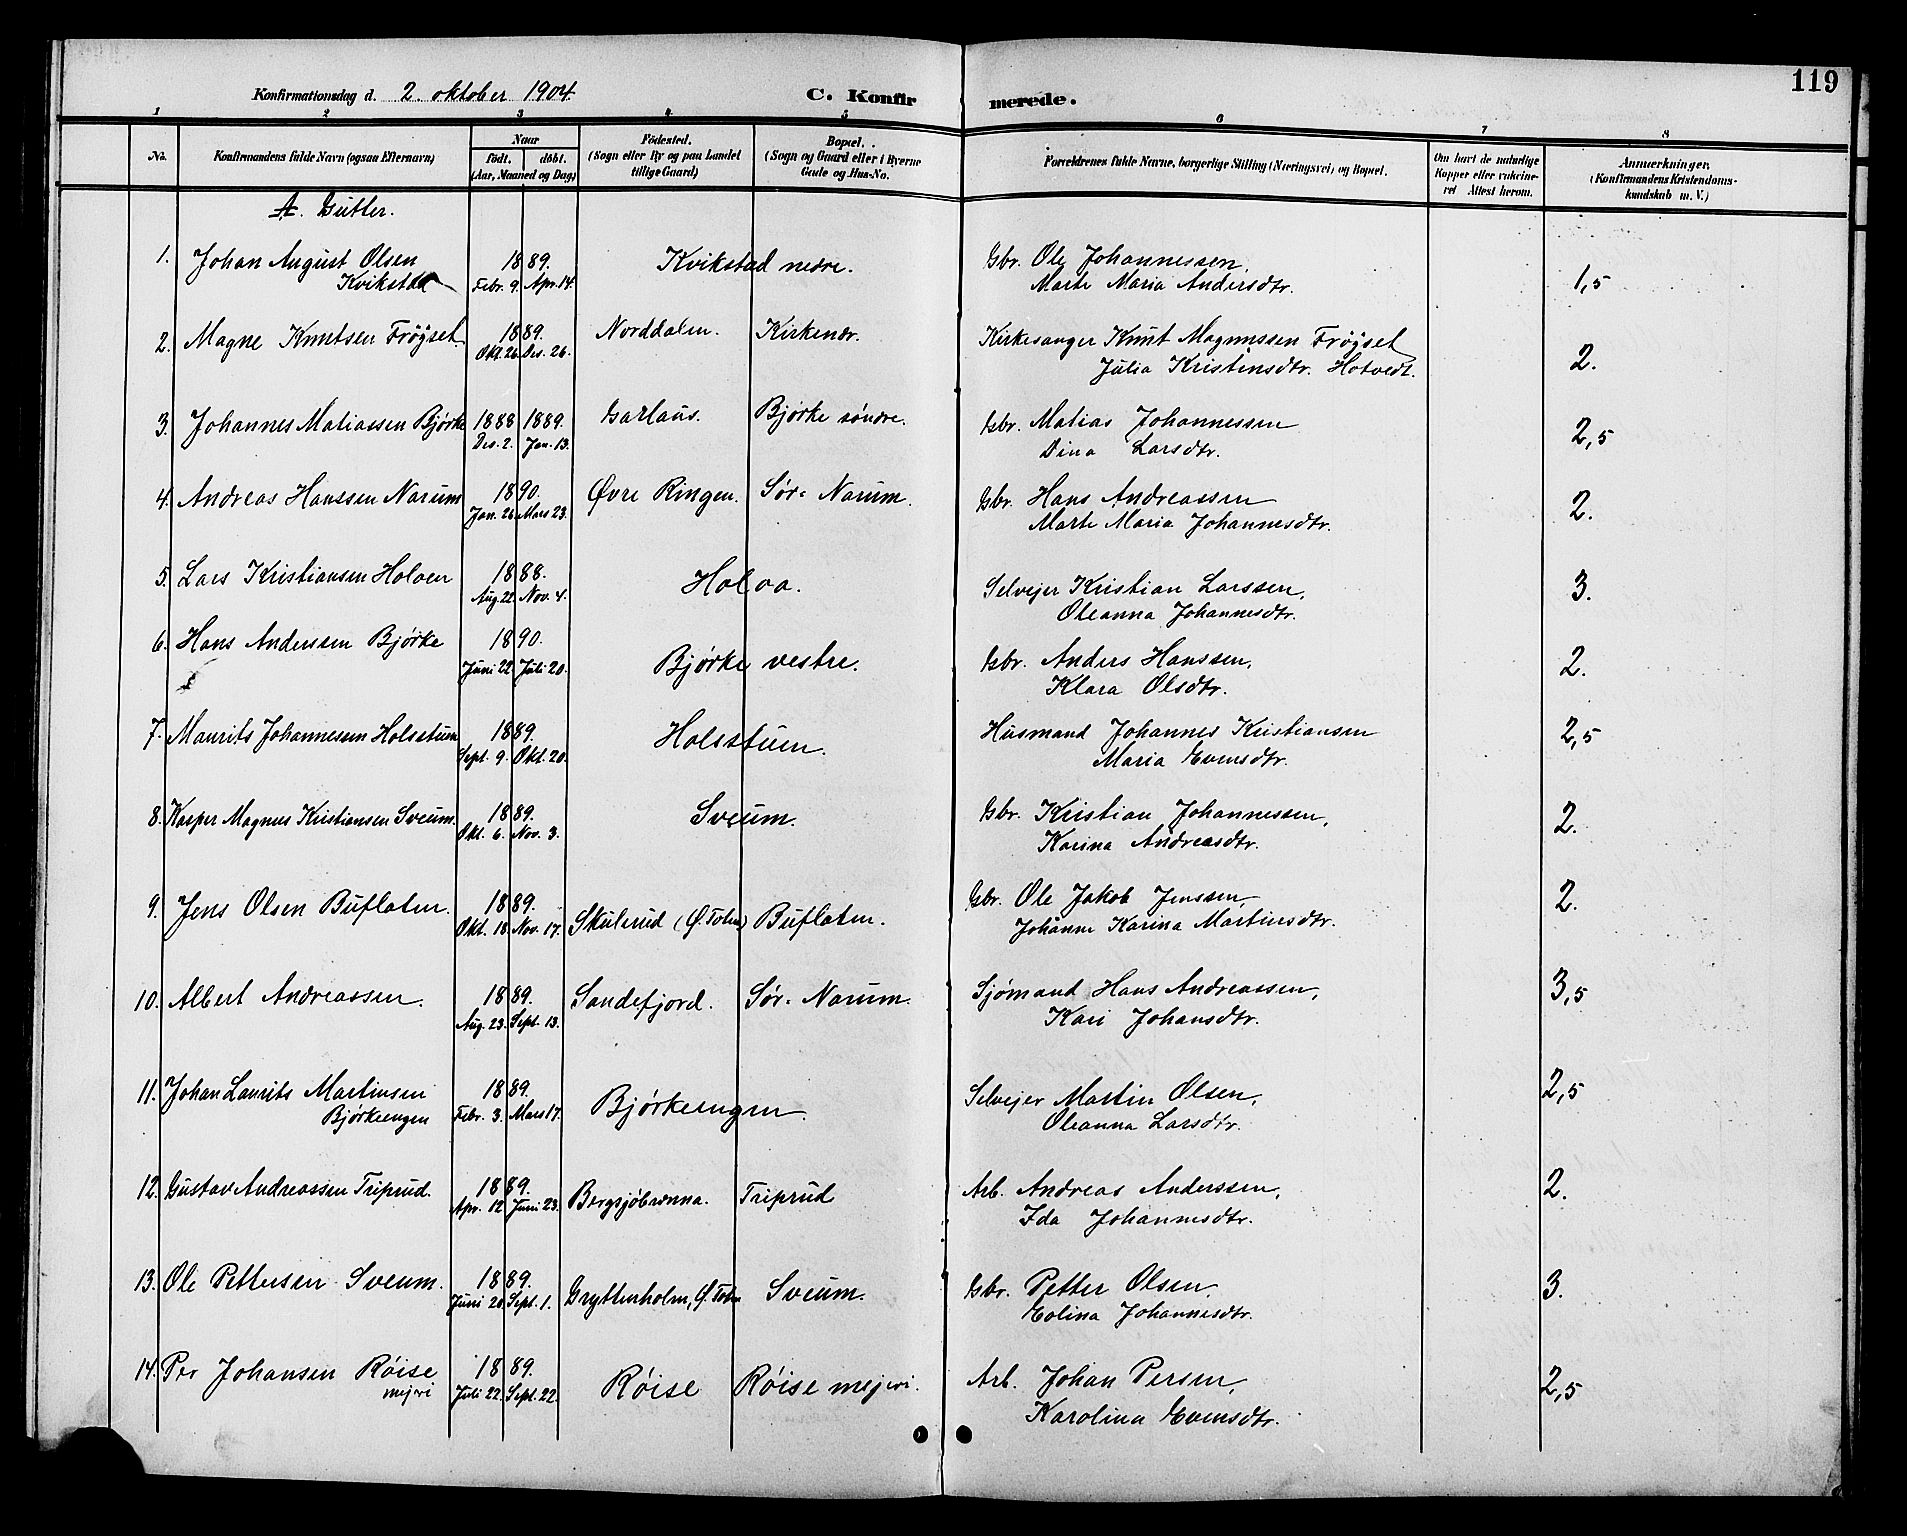 119
Konfirmationsdag d. 2. oktober 1904.
C. Konfirmerede.
1 2 3 4 5 6 7 8
No. Konfirmandens fulde Navn (ogsaa Efternavn) Naar födt. döbt. (Aar, Maaned og Dag) Födested. (Sogn eller By og paa Landet tillige Gaard) Bopæl. (Sogn og Gaard eller i Byerne Gade og Hus-No. Forældrenes fulde Navne, borgerlige Stilling (Næringsvei) og Bopæl. Om havt de naturlige Kopper eller vakcineret Attest herom. Anmærkninger, (Konfirmandens Kristendomskundskab m. V.)
A. Gutter.
1. Johan August Olsen Kvikstad 1889. Febr. 9. Apr. 14. Kvikstad nedre. Gbr. Ole Johannessen, 1,5
Marte Maria Andersdtr.
2. Magne Knutsen Frøyset. 1889. Okt. 26. Des. 26. Norddalen. Kirkenær. Kirkesanger Knut Magnussen Frøyset 2.
Julia Kristinsdtr. Hotvedt.
3. Johannes Matiassen Bjørke 1888 Des. 2. 1889. Jan. 13. Garlaus. Bjørke søndre. Gbr. Matias Johannessen 2,5
Dina Larsdtr.
4. Andreas Hanssen Narum 1890. Jan. 26. Mars 23. Øvre Ringen. Sør-Narum. Gbr. Hans Andreassen 2.
Marte Maria Johannesdtr.
5. Lars Kristiansen Holoen 1888. Aug. 22. Nov. 4. Holoa. Selvejer Kristian Larssen, 3.
Oleanna Johannesdtr.
6. Hans Anderssen Bjørke 1890. Juni 22. Juli 20. Bjørke vestre. Gbr. Anders Hanssen, 2.
Klara Olsdtr.
7. Maurits Johannessen Holsstuen 1889. Sept. 9. Okt. 20. Holsstuen. Husmand Johannes Kristiansen 2,5
Maria Evensdtr.
8. Kasper Magnus Kristiansen Sveum. 1889. Okt. 6. Nov. 3. Sveum. Gbr. Kristian Johannessen, 2.
Karina Andreasdtr.
9. Jens Olsen Buflaten. 1889. Okt. 18. Nov. 17. Skulerud (Ø. Toten) Buflaten. Gbr. Ole Jakob Jenssen, 2.
Johanne Karina Martinsdtr.
10. Albert Andreassen. 1889. Aug. 23. Sept. 13. Sandefjord. Sør-Narum. Sjømand Hans Andreassen, 3,5
Kari Johansdtr.
11. Johan Laurits Martinsen Bjørkeengen 1889. Febr. 3. Mars 17. Bjørkeengen. Selvejer Martin Olsen, 2,5
Oleanna Larsdtr.
12. Gustav Andreassen Triprud. 1889. Apr. 12 Juni 23. Bergsjøbrønna. Triprud Arb. Andreas Anderssen, 2.
Ida Johannesdtr.
13. Ole Pettersen Sveum. 1889. Juni 20. Sept. 1. Gryttenholm, Ø. Toten Sveum. Gbr. Petter Olsen, 3.
Eolina Johannesdtr.
14. Per Johansen Røise mejeri 1889. Juli 22. Sept. 22. Røise Røise mejeri. Arb. Johan Persen, 2,5
Karolina Evensdtr.